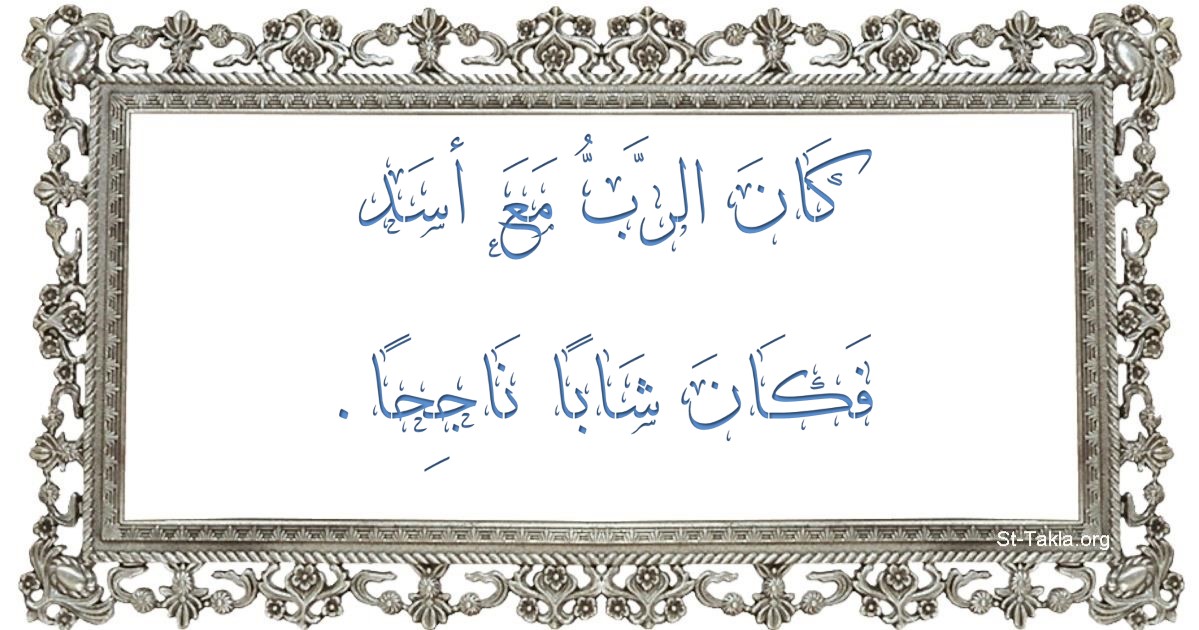 كَانَ الرَّبُّ مَعَ أسَد
فَكَانَ شَابًا نَاجِحًا .
St-Takla.org